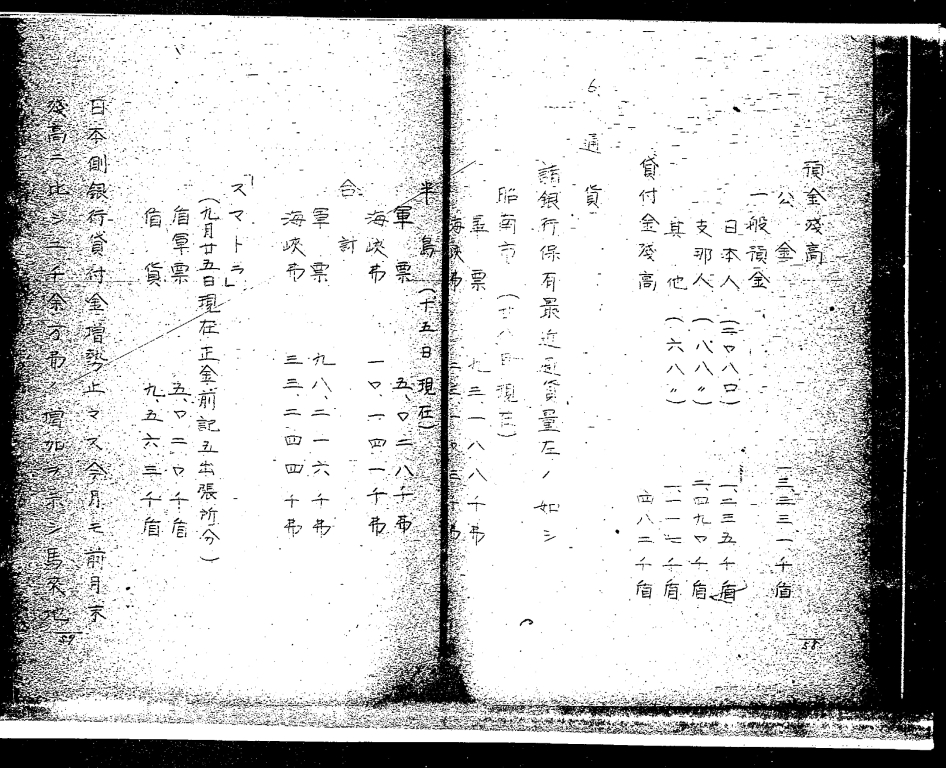 預金残高
公金 一三、三三一千盾
一般預金
日本人(三〇八口) 一、二三五千盾
支那人(八八〃) 二四九〇千盾
其他(六八〃) 一一一七千盾
貸付金残高 四八二千盾
6. 通貨
諸銀行保有最近通貨量左ノ如シ
昭南市(廿八日現在)
軍票 九三、一八八千弗
海峡弗 二三、一〇三千弗
58
半島(十五日現在)
軍票 五、〇二八千弗
海峡弗 一〇、一四一千弗
合計
軍票 九八、二一六千弗
海峡弗 三三、二四四千弗
「スマトラ」
(九月廿五日現在正金前記五出張所分)
盾軍票 五、〇二〇千盾
盾貨 九、五六三千盾
日本側銀行貸付金増勢止マズ今月モ前月末
残高ニ比シ二千余万弗ノ増加ヲ示シ馬来地
59